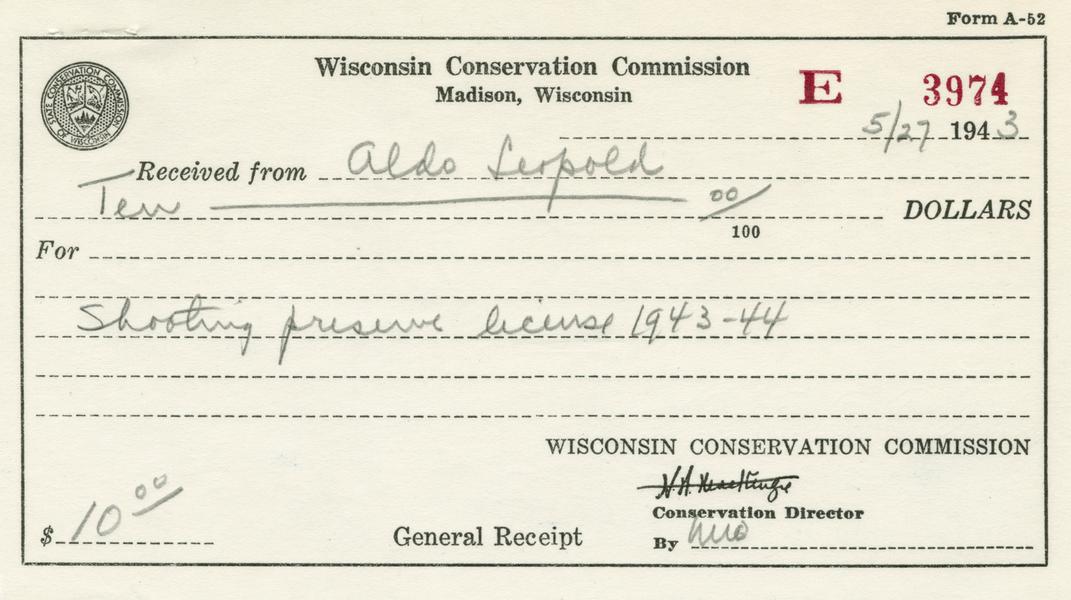 Form A-52
STATE CONSERVATION COMMISSION OF WISCONSIN
Wisconsin Conservation Commission
Madison, Wisconsin
E 3974
5/27 1943
Received from Aldo Leopold
Ten 00/100 DOLLARS
For
Shooting preserve license 1943-44
WISCONSIN CONSERVATION COMMISSION
Conservation Director
$ 10 00
General Receipt
By